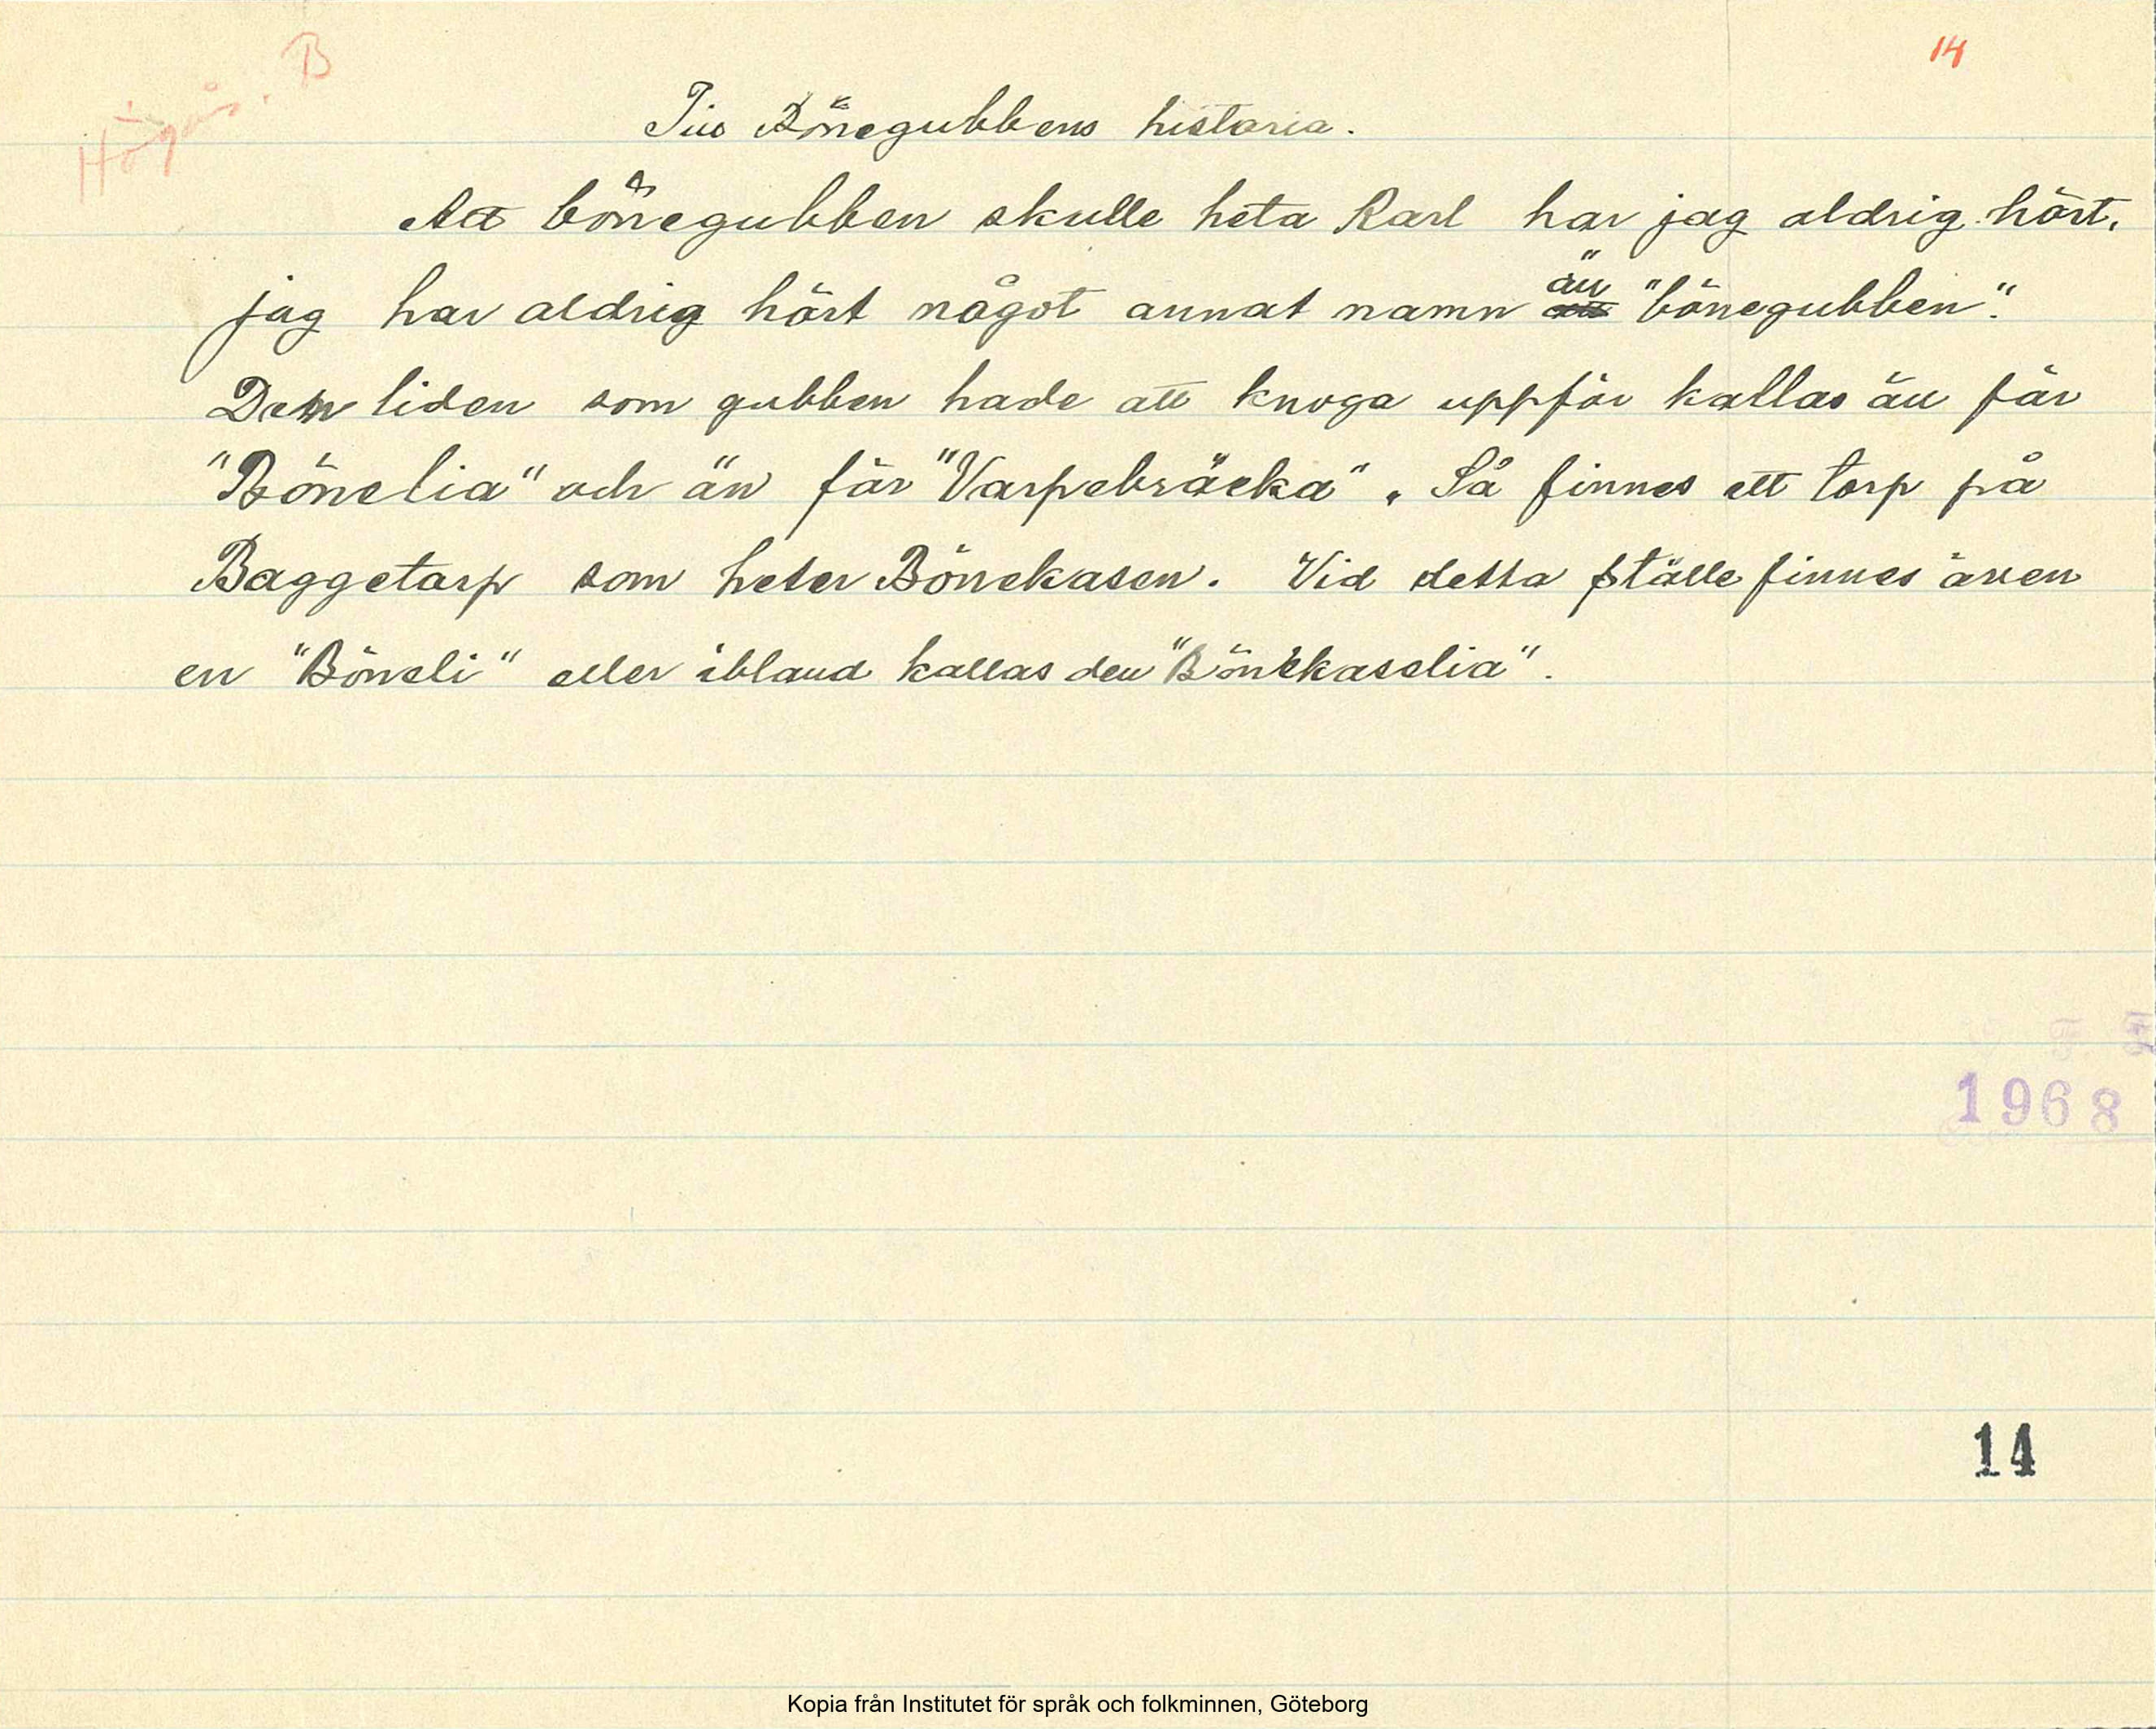 Högås. B
14
Till Bönegubbens historia.
Att bönegubben skulle heta Karl har jag aldrig hört,
jag har aldrig hört något annat namn än "bönegubben".
Den liden som gubben hade att knoga uppför kallas än för
"Bönelia" och än för "Varpebräcka". Så finnes ett torp på
Baggetorp som heter Bönekasen. Vid detta ställe finnes även
en "Böneli" eller ibland kallas den "Bönekaselia".
1968
14
Kopia från Institutet för språk och folkminnen, Göteborg